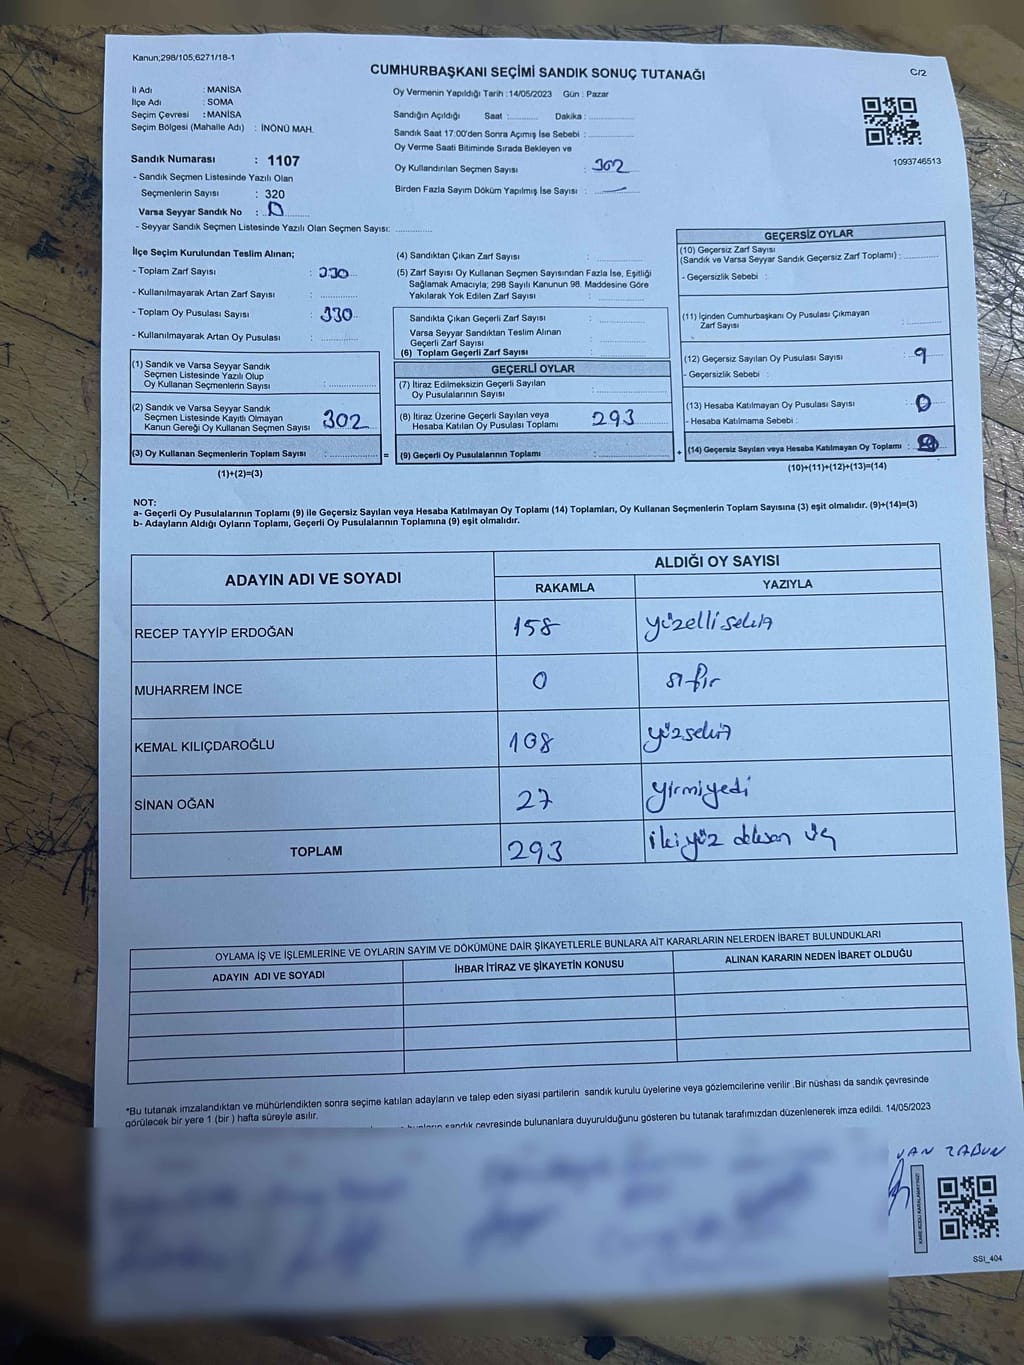 Kanun;298/105;6271/18-1
CUMHURBAŞKANI SEÇİMİ SANDIK SONUÇ TUTANAĞI
C/2
İl Adı : MANİSA
İlçe Adı : SOMA
Seçim Çevresi : MANİSA
Seçim Bölgesi (Mahalle Adı) : İNÖNÜ MAH.
Oy Vermenin Yapıldığı Tarih :14/05/2023 Gün : Pazar
Sandığın Açıldığı Saat :............ Dakika :................
Sandık Saat 17:00'den Sonra Açımış İse Sebebi :................
Oy Verme Saati Bitiminde Sırada Bekleyen ve
Oy Kullandırılan Seçmen Sayısı : 302
Birden Fazla Sayım Döküm Yapılmış İse Sayısı : —
1093746513
Sandık Numarası : 1107
- Sandık Seçmen Listesinde Yazılı Olan
Seçmenlerin Sayısı : 320
Varsa Seyyar Sandık No : 0
- Seyyar Sandık Seçmen Listesinde Yazılı Olan Seçmen Sayısı:................
İlçe Seçim Kurulundan Teslim Alınan;
- Toplam Zarf Sayısı : 330
- Kullanılmayarak Artan Zarf Sayısı :................
- Toplam Oy Pusulası Sayısı : 330
- Kullanılmayarak Artan Oy Pusulası :................
(1) Sandık ve Varsa Seyyar Sandık
Seçmen Listesinde Yazılı Olup
Oy Kullanan Seçmenlerin Sayısı :................
(2) Sandık ve Varsa Seyyar Sandık
Seçmen Listesinde Kayıtlı Olmayan
Kanun Gereği Oy Kullanan Seçmen Sayısı 302
(3) Oy Kullanan Seçmenlerin Toplam Sayısı :................ =
(1)+(2)=(3)
(4) Sandıktan Çıkan Zarf Sayısı :................
(5) Zarf Sayısı Oy Kullanan Seçmen Sayısından Fazla İse, Eşitliği
Sağlamak Amacıyla; 298 Sayılı Kanunun 98. Maddesine Göre
Yakılarak Yok Edilen Zarf Sayısı :................
Sandıkta Çıkan Geçerli Zarf Sayısı :................
Varsa Seyyar Sandıktan Teslim Alınan
Geçerli Zarf Sayısı :................
(6) Toplam Geçerli Zarf Sayısı :................
GEÇERLİ OYLAR
(7) İtiraz Edilmeksizin Geçerli Sayılan
Oy Pusulalarının Sayısı :................
(8) İtiraz Üzerine Geçerli Sayılan veya
Hesaba Katılan Oy Pusulası Toplamı 293
(9) Geçerli Oy Pusulalarının Toplamı :................ +
GEÇERSİZ OYLAR
(10) Geçersiz Zarf Sayısı
(Sandık ve Varsa Seyyar Sandık Geçersiz Zarf Toplamı) :................
- Geçersizlik Sebebi :
(11) İçinden Cumhurbaşkanı Oy Pusulası Çıkmayan
Zarf Sayısı :................
(12) Geçersiz Sayılan Oy Pusulası Sayısı : 9
- Geçersizlik Sebebi :
(13) Hesaba Katılmayan Oy Pusulası Sayısı : 0
- Hesaba Katılmama Sebebi :
(14) Geçersiz Sayılan veya Hesaba Katılmayan Oy Toplamı :
(10)+(11)+(12)+(13)=(14)
NOT:
a- Geçerli Oy Pusulalarının Toplamı (9) ile Geçersiz Sayılan veya Hesaba Katılmayan Oy Toplamı (14) Toplamları, Oy Kullanan Seçmenlerin Toplam Sayısına (3) eşit olmalıdır. (9)+(14)=(3)
b- Adayların Aldığı Oyların Toplamı, Geçerli Oy Pusulalarının Toplamına (9) eşit olmalıdır.
ADAYIN ADI VE SOYADI ALDIĞI OY SAYISI
RAKAMLA YAZIYLA
RECEP TAYYİP ERDOĞAN 158 yüzelli sekiz
MUHARREM İNCE 0 sıfır
KEMAL KILIÇDAROĞLU 108 yüzsekiz
SİNAN OĞAN 27 yirmiyedi
TOPLAM 293 ikiyüz doksan üç
OYLAMA İŞ VE İŞLEMLERİNE VE OYLARIN SAYIM VE DÖKÜMÜNE DAİR ŞİKAYETLERLE BUNLARA AİT KARARLARIN NELERDEN İBARET BULUNDUKLARI
ADAYIN ADI VE SOYADI İHBAR İTİRAZ VE ŞİKAYETİN KONUSU ALINAN KARARIN NEDEN İBARET OLDUĞU
*Bu tutanak imzalandıktan ve mühürlendikten sonra seçime katılan adayların ve talep eden siyasi partilerin sandık kurulu üyelerine veya gözlemcilerine verilir .Bir nüshası da sandık çevresinde
görülecek bir yere 1 (bir ) hafta süreyle asılır.
sandık çevresinde bulunanlara duyurulduğunu gösteren bu tutanak tarafımızdan düzenlenerek imza edildi. 14/05/2023
SSI_404